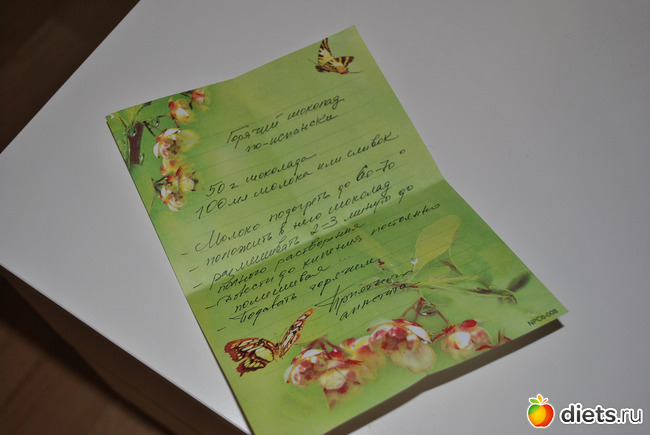 Горячий шоколад
по-испански
50 г шоколада
100 мл молока или сливок
- Молоко подогреть до 60-70°
- положить в него шоколад
- размешивать 2-3 минуты до
полного растворения
- довести до кипения постоянно
помешивая ...
- Подавать горячим.
Приятного
аппетита
NPC6-008
diets.ru